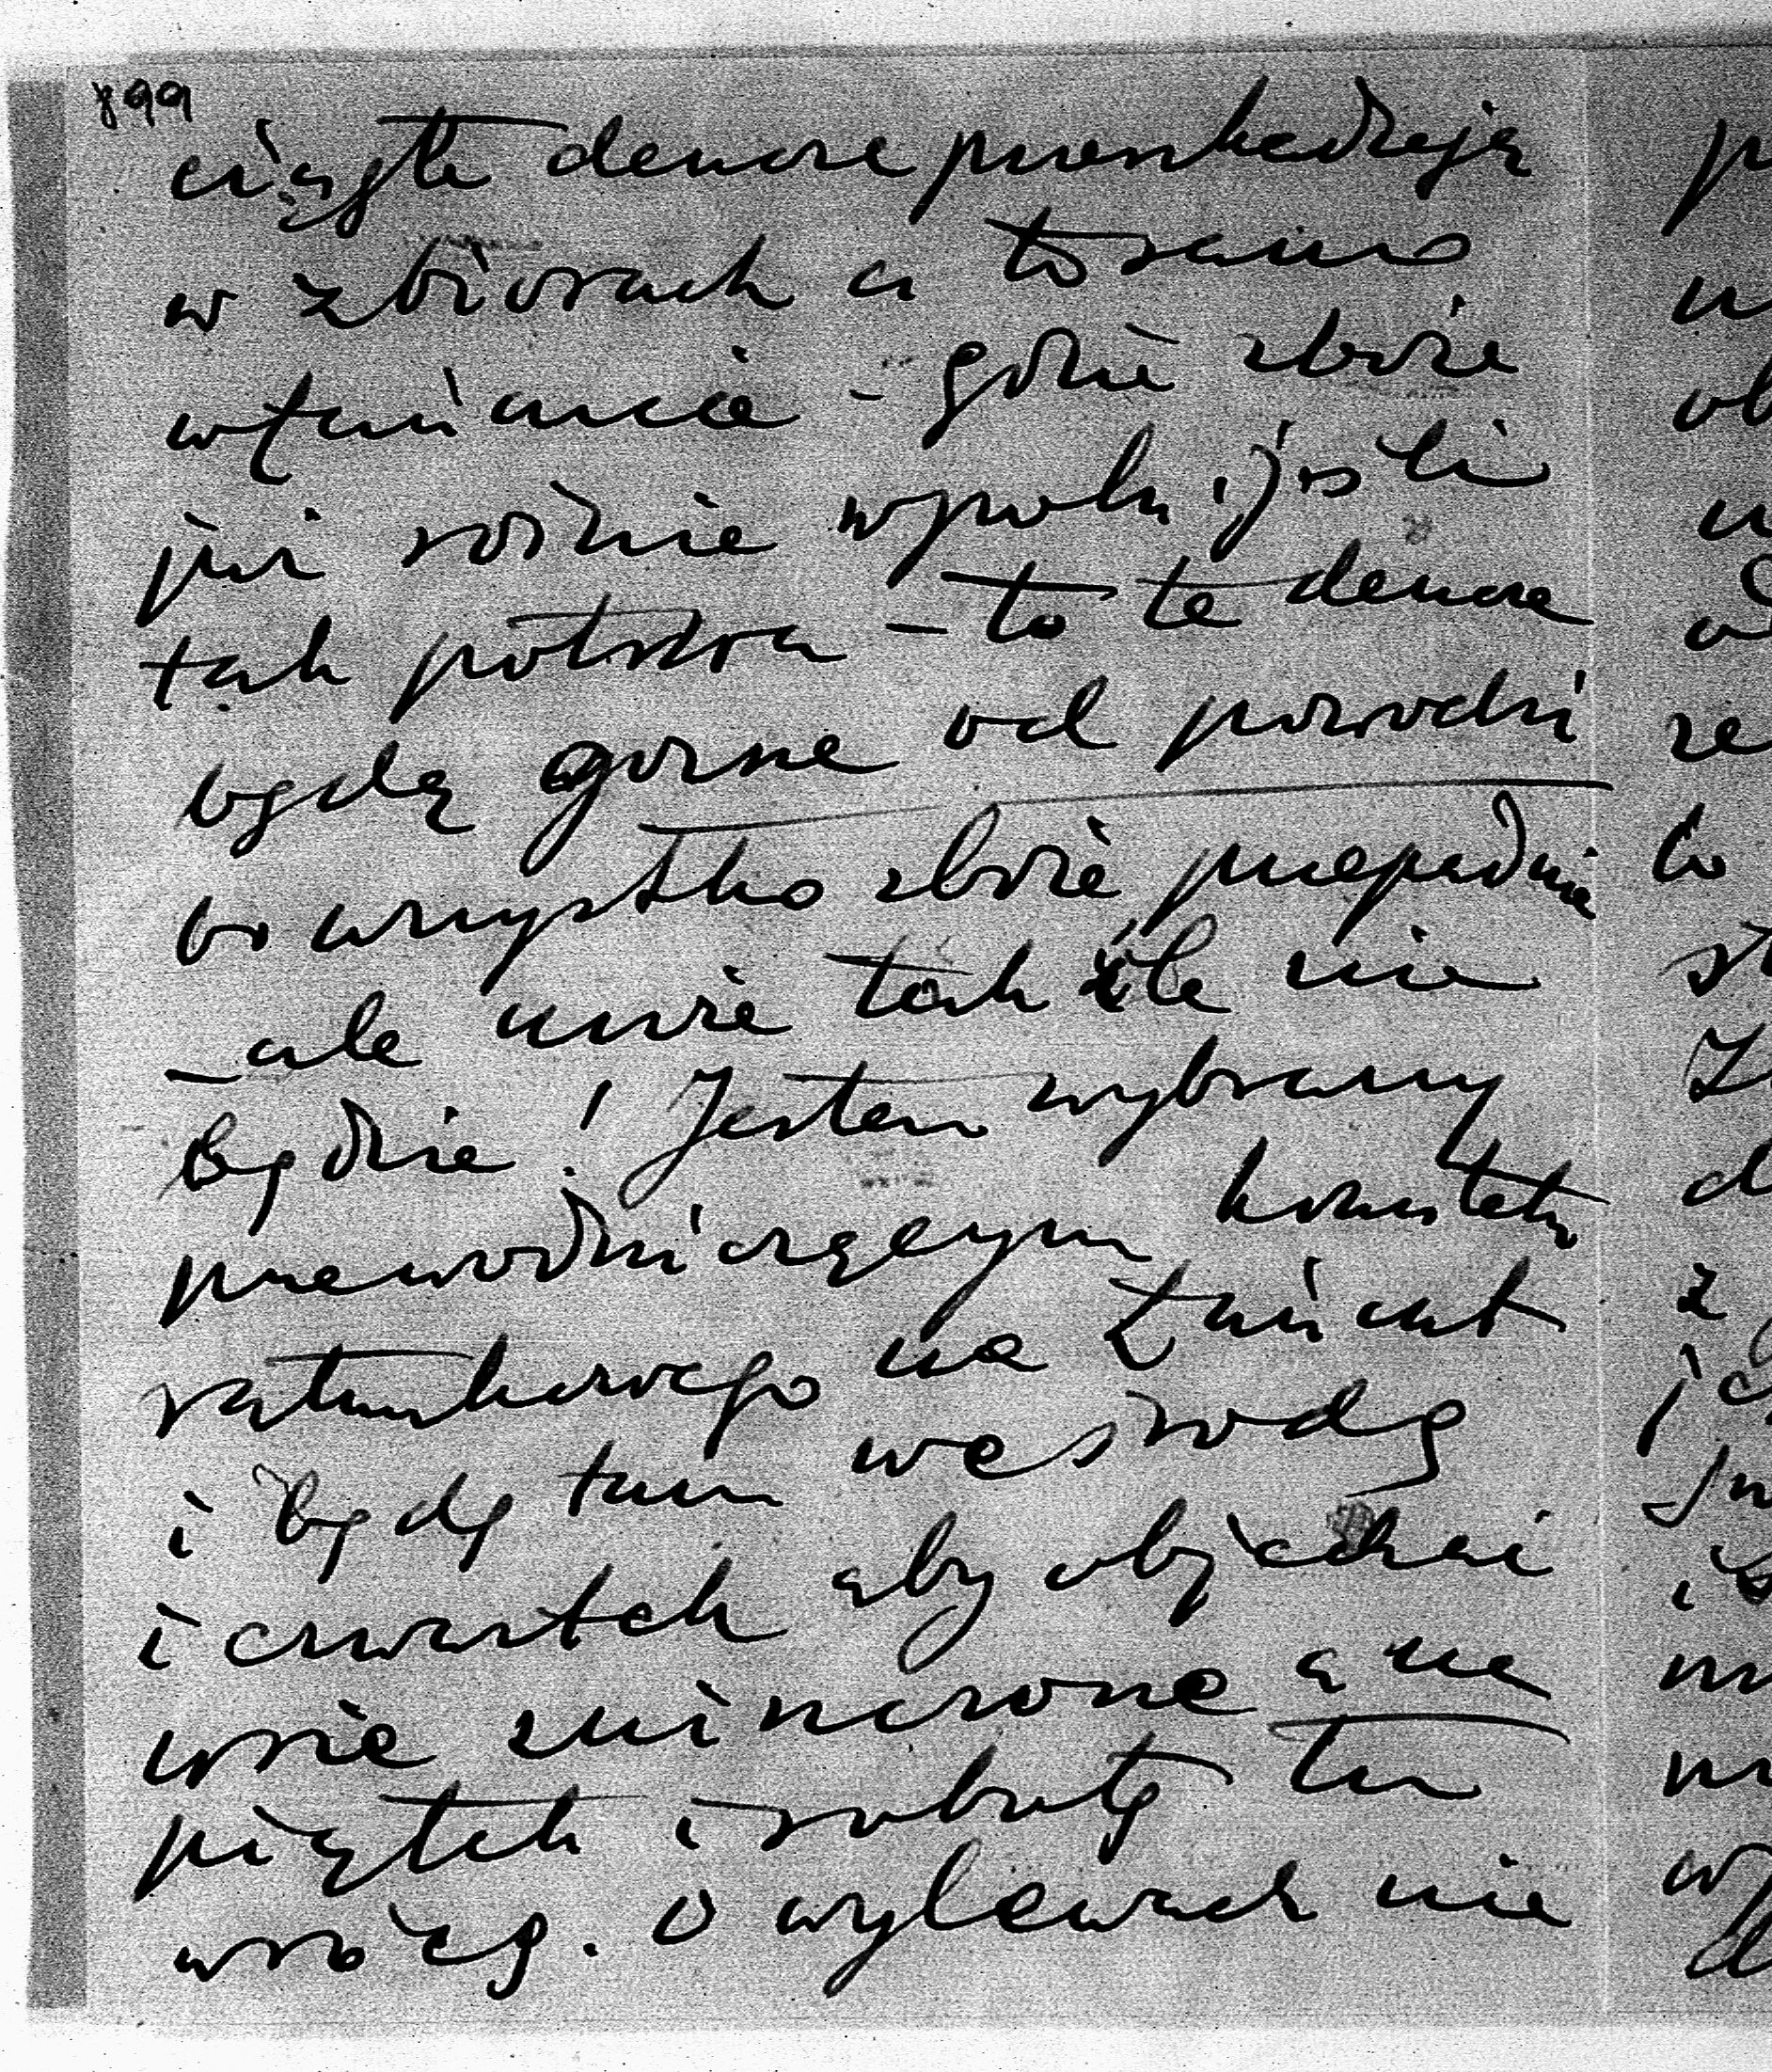 899
ciągłe deszcze przeszkadzają
w zbiorach a to samo
w Łańcucie - gdzie zboże
już rośnie w polu i jeśli
tak potrwa - to te deszcze
będą gorsze od powodzi
bo wszystko zboże przepadnie
- ale może tak źle nie
będzie! Jestem wybrany
przewodniczącym komitetu
ratunkowego na Łańcut
i będę tam we środę
i czwartek aby objechać
wsie zniszczone a na
piątek i sobotę tu
wrócę. O wylewach nie